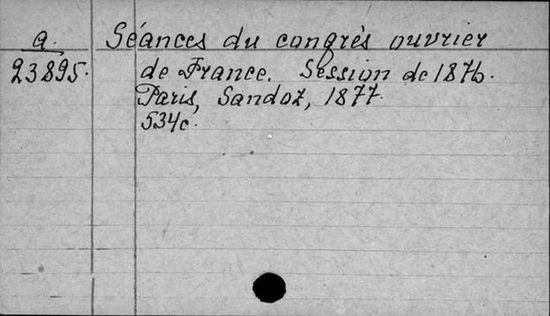 a. Séances du congrès ouvrier
23895. de France. Session de 1876.
Paris, Sandoz, 1877.
534c.